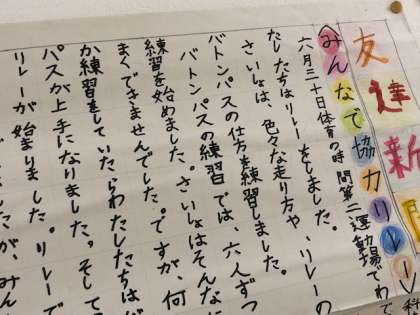 友達新
みんなで協力リレー
六月三十日体育の時間第二運動場でわ
たしたちはリレーをしました。
さいしょは、色々な走り方や、リレーの
バトンパスの仕方を練習しました。
バトンパスの練習では、六人ずつ
練習を始めました。さいしょはそんなに
まくできませんでした。ですが、何
か練習をしていたらわたしたちはバ
パスが上手になりました。そして
リレーが始まりました。リレーで
したが、みん